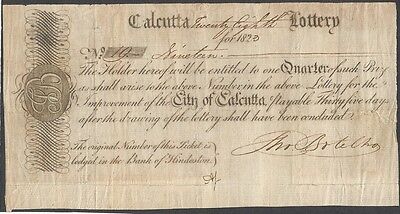 Calcutta Twenty Eighth Lottery
for 1823
No. 19 Nineteen
The Holder hereof will be entitled to one Quarter of such Prize
as shall arise to the above Number in the above Lottery for the
Improvement of the City of Calcutta, payable Thirty five days
after the drawing of the lottery shall have been concluded.
The original Number of this Ticket is
lodged in the Bank of Hindostan.